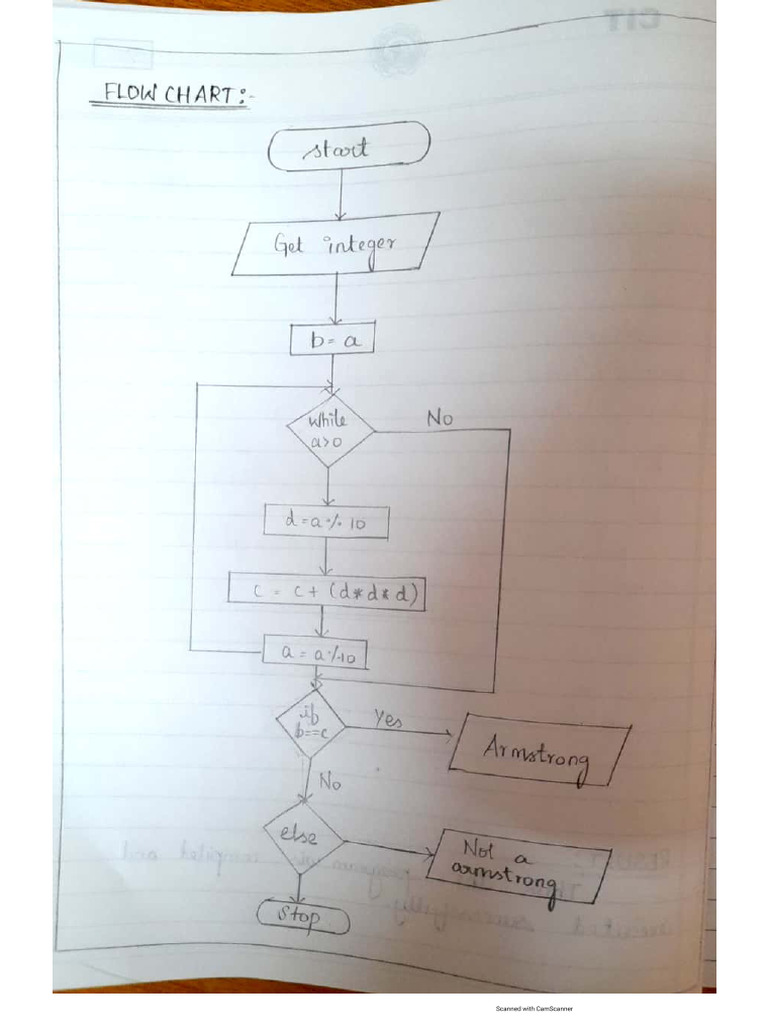 CIT
FLOW CHART:-
start
Get integer
b = a
while
a>0
No
d = a % 10
c = c + (d*d*d)
a = a%10
if
b==c
Yes
Armstrong
No
else
Not a
armstrong
Stop
Scanned with CamScanner